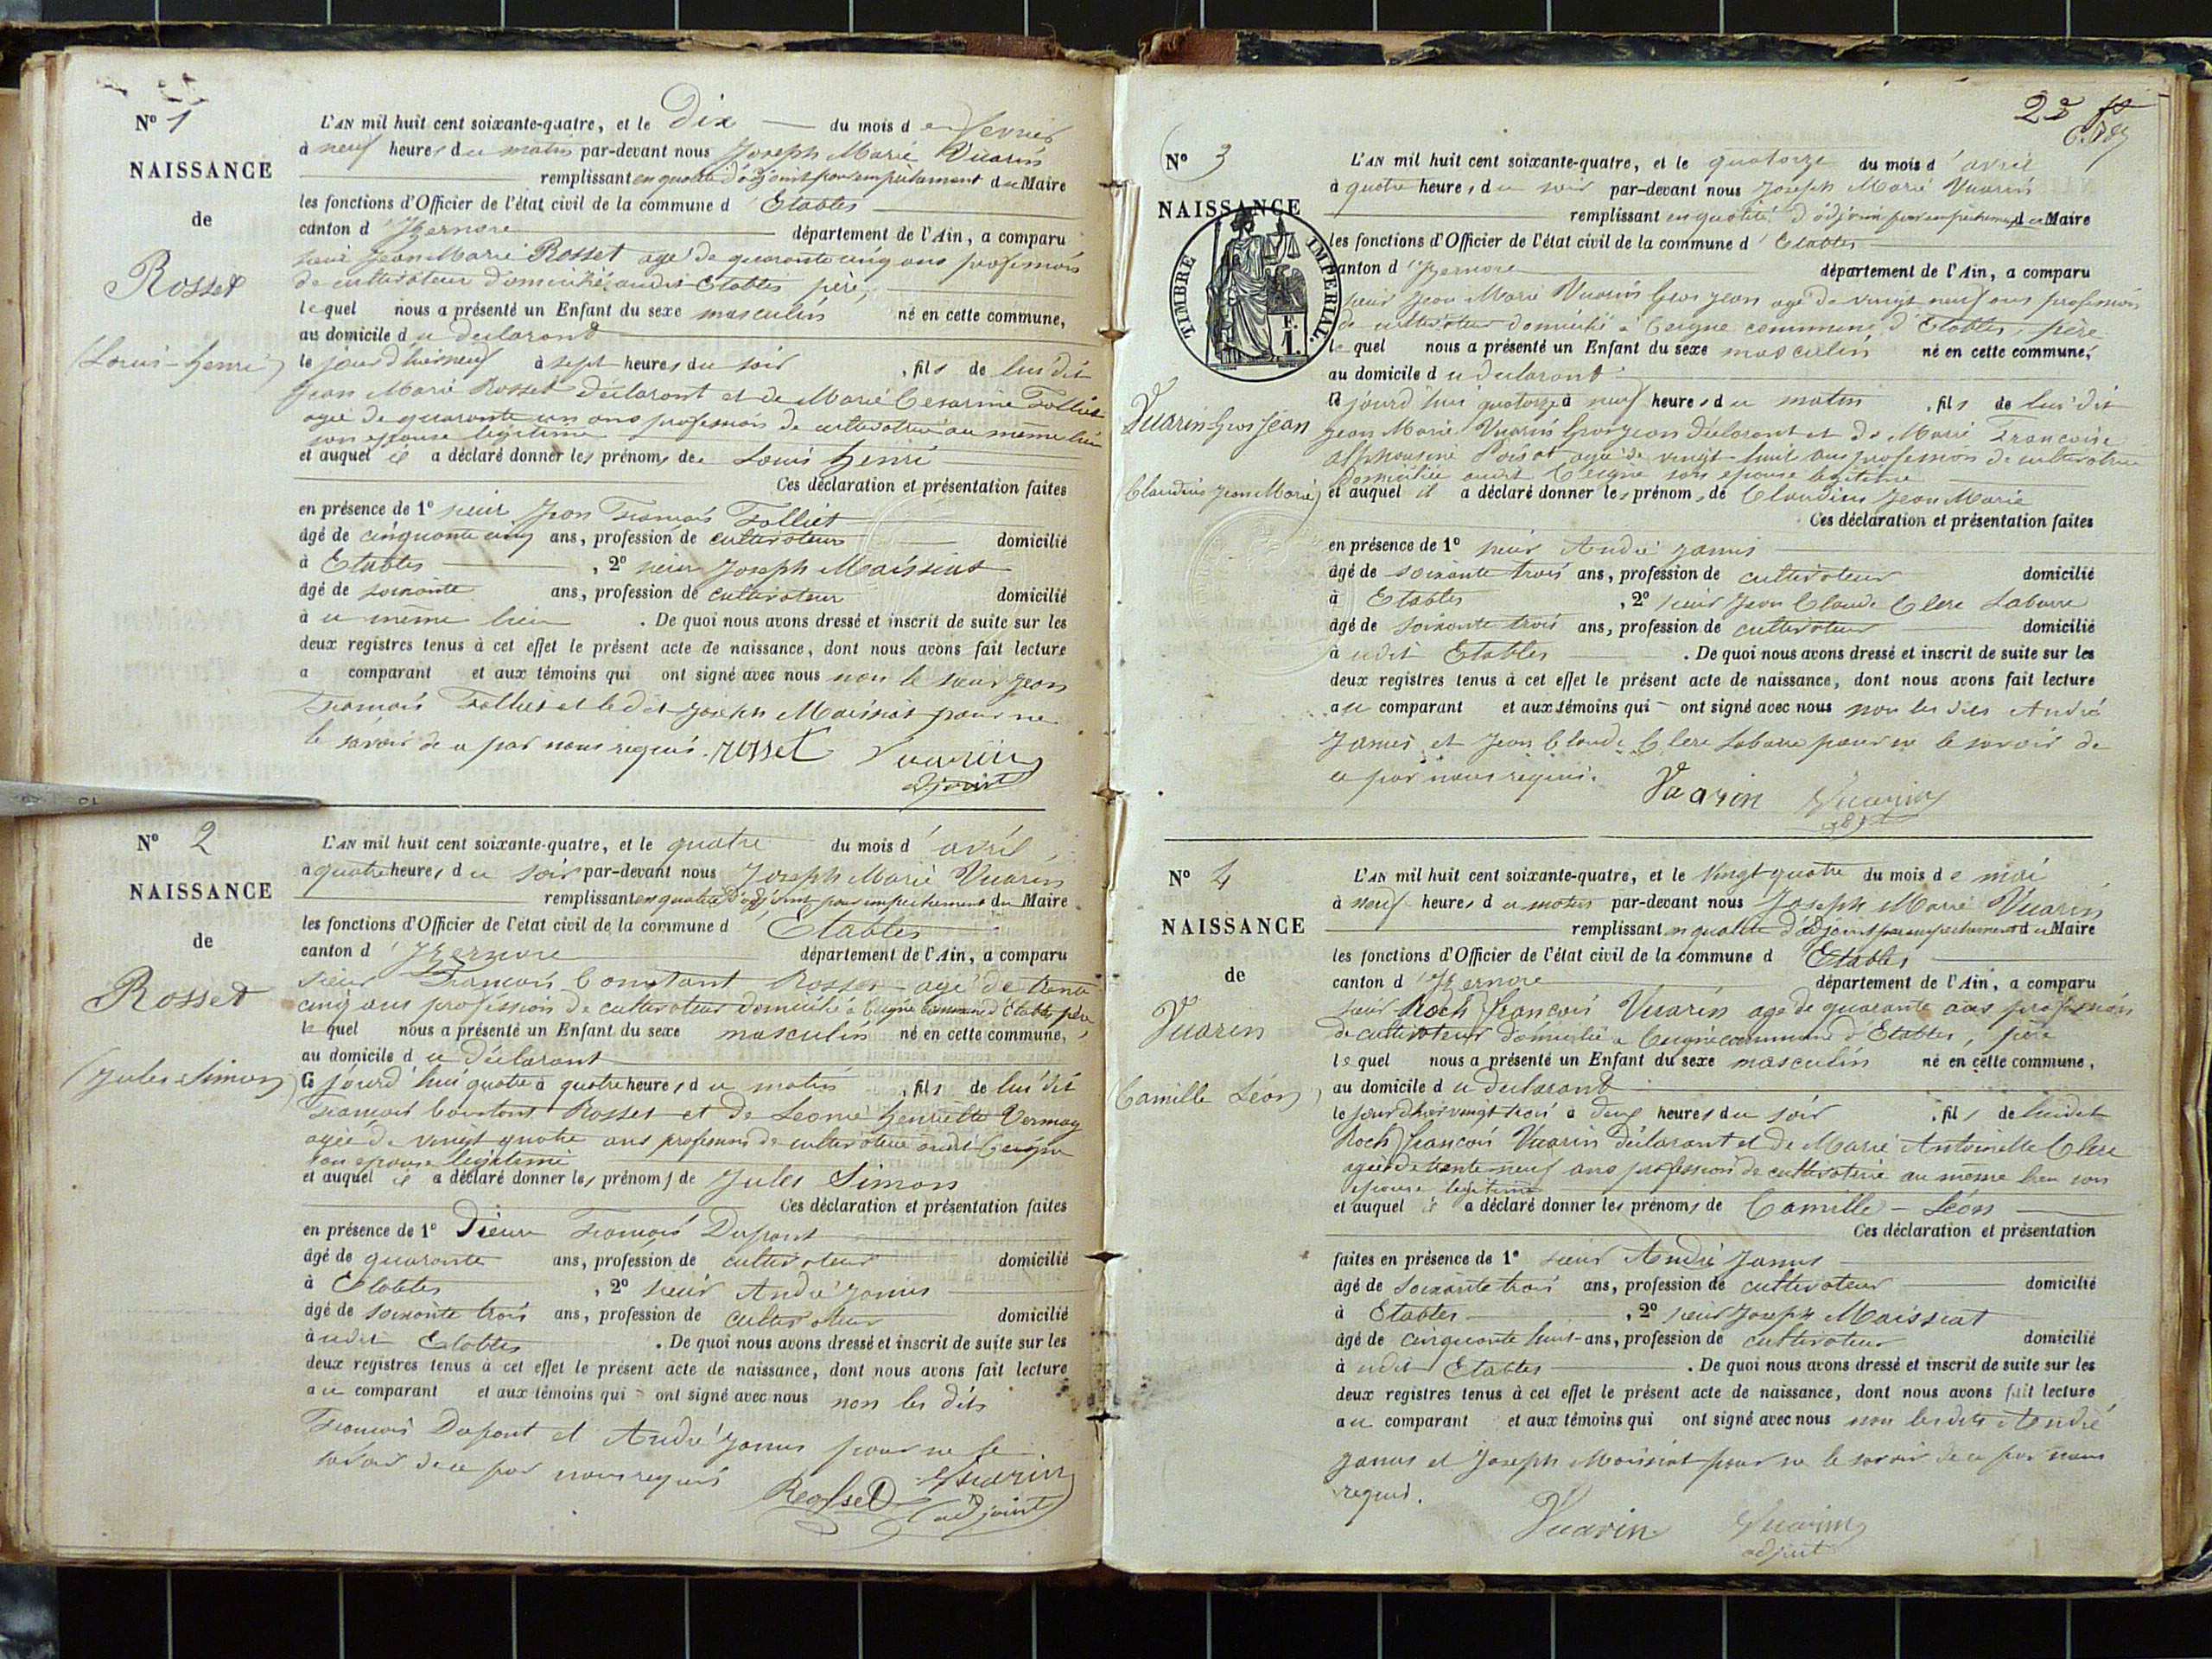 N° 1
NAISSANCE
de
Rosset
(Louis-henri)
L'AN mil huit cent soixante-quatre, et le Dix du mois de fevrier
à neuf heures du matin par-devant nous Joseph Marie Vuarin
remplissant en qualité d'adjoint pour empechement du Maire
les fonctions d'Officier de l'état civil de la commune d'Etables
canton d'Izernore département de l'Ain, a comparu
sieur Jean Marie Rosset agé de quarante cinq ans profession
de cultivateur domicilié audit Etables père,
lequel nous a présenté un Enfant du sexe masculin né en cette commune,
au domicile du declarant
le jour d'hier neuf à sept heures du soir, fils de lui dit
Jean Marie Rosset déclarant et de Marie Cesarine Folliet
agée de quarante un ans profession de cultivatrice au même lieu
son epouse legitime
et auquel il a déclaré donner les prénoms de Louis henri
Ces déclaration et présentation faites
en présence de 1° sieur Jean François Folliet
âgé de cinquante cinq ans, profession de cultivateur domicilié
à Etables, 2° sieur Joseph Maissiat
âgé de soixante ans, profession de cultivateur domicilié
à u même lieu. De quoi nous avons dressé et inscrit de suite sur les
deux registres tenus à cet effet le présent acte de naissance, dont nous avons fait lecture
a comparant et aux témoins qui ont signé avec nous non le sieur Jean
François Folliet et le dit Joseph Maissiat pour ne
le savoir de ce par nous requis. rosset Vuarin
adjoint
N° 2
NAISSANCE
de
Rosset
(Jules-Simon)
L'AN mil huit cent soixante-quatre, et le quatre du mois d'avril
à quatre heures du soir par-devant nous Joseph Marie Vuarin
remplissant en qualité d'adjoint pour empechement du Maire
les fonctions d'Officier de l'état civil de la commune d'Etables
canton d'Izernore département de l'Ain, a comparu
sieur François Constant Rosset agé de trente
cinq ans profession de cultivateur domicilié à Ceigne commune d'Etables père
lequel nous a présenté un Enfant du sexe masculin né en cette commune,
au domicile du déclarant
ce jourd'hui quatre à quatre heures du matin, fils de lui dit
François Constant Rosset et de Leonie henriette Vermay
agée de vingt quatre ans profession de cultivatrice audit Ceigne
son epouse legitime
et auquel il a déclaré donner les prénoms de Jules Simon
Ces déclaration et présentation faites
en présence de 1° Sieur François Dupont
âgé de quarante ans, profession de cultivateur domicilié
à Etables, 2° sieur André Janus
âgé de soixante trois ans, profession de cultivateur domicilié
à udit Etables. De quoi nous avons dressé et inscrit de suite sur les
deux registres tenus à cet effet le présent acte de naissance, dont nous avons fait lecture
au comparant et aux témoins qui ont signé avec nous non les dits
François Dupont et André Janus pour ne le
savoir de ce par nous requis
Rosset Vuarin
adjoint
N° 3
NAISSANCE
TIMBRE IMPERIAL.
F.
1.
Vuarin Gros Jean
(Claudius Jean Marie)
L'AN mil huit cent soixante-quatre, et le quatorze du mois d'avril
à quatre heures du soir par-devant nous Joseph Marie Vuarin
remplissant en qualité d'adjoint pour empechement du Maire
les fonctions d'Officier de l'état civil de la commune d'Etables
canton d'Izernore département de l'Ain, a comparu
sieur Jean Marie Vuarin Gros jean agé de vingt neuf ans profession
de cultivateur domicilié à Ceigne commune d'Etables père
lequel nous a présenté un Enfant du sexe masculin né en cette commune,
au domicile du declarant
ce jourd'hui quatorze à neuf heures du matin, fils de lui dit
Jean Marie Vuarin Gros jean déclarant et de Marie Françoise
alphonsine agée de vingt-huit ans profession de cultivatrice
domiciliée audit Ceigne son epouse legitime
et auquel il a déclaré donner les prénoms de Claudius Jean Marie
Ces déclaration et présentation faites
en présence de 1° sieur André Janus
âgé de soixante trois ans, profession de cultivateur domicilié
à Etables, 2° sieur Jean Claude Clerc Labarre
âgé de soixante trois ans, profession de cultivateur domicilié
à udit Etables. De quoi nous avons dressé et inscrit de suite sur les
deux registres tenus à cet effet le présent acte de naissance, dont nous avons fait lecture
au comparant et aux témoins qui ont signé avec nous non les dits André
Janus et Jean Claude Clerc Labarre pour ne le savoir de
ce par nous requis.
Vuarin Vuarin
N° 4
NAISSANCE
de
Vuarin
(Camille Léon)
L'AN mil huit cent soixante-quatre, et le Vingt quatre du mois de mai
à neuf heures du matin par-devant nous Joseph Marie Vuarin
remplissant en qualité d'adjoint pour empechement du Maire
les fonctions d'Officier de l'état civil de la commune d Etables
canton d'Izernore département de l'Ain, a comparu
sieur Roch françois Vuarin agé de quarante ans profession
de cultivateur domicilié à Ceigne commune d'Etables, père
lequel nous a présenté un Enfant du sexe masculin né en cette commune,
au domicile du declarant
le jour d'hier vingt trois à deux heures du soir, fils de lui dit
Roch françois Vuarin déclarant et de Marie Antoinette Clerc
agée de trente neuf ans profession de cultivatrice au même lieu son
epouse legitime
et auquel il a déclaré donner les prénoms de Camille-Léon
Ces déclaration et présentation
faites en présence de 1° sieur André Janus
âgé de soixante trois ans, profession de cultivateur domicilié
à Etables, 2° sieur Joseph Maissiat
âgé de cinquante huit ans, profession de cultivateur domicilié
à udit Etables. De quoi nous avons dressé et inscrit de suite sur les
deux registres tenus à cet effet le présent acte de naissance, dont nous avons fait lecture
au comparant et aux témoins qui ont signé avec nous non les dits André
Janus et Joseph Maissiat pour ne le savoir de ce par nous
requis.
Vuarin Vuarin
adjoint